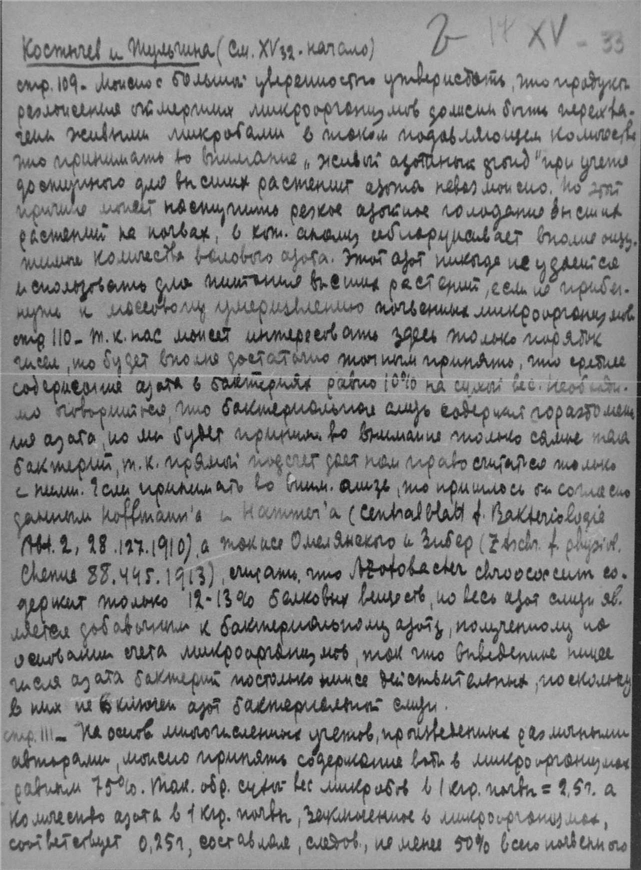 2 17 XV - 33
Костычев и Шульгина (См. XV 32 - начало)
стр. 109 - Можно с большой уверенностью утверждать, что продукты
разложения отмерших микроорганизмов должны быть перехва-
чены живыми микробами в таком подавляющем количестве
что принимать во внимание „живой азотный фонд" при учете
доступного для высших растений азота невозможно. По этой
причине может наступить резкое азотное голодание высших
растений на почвах, в кот. анализ обнаруживает вполне ощу-
тимые количества валового азота. Этот азот никогда не удается
использовать для питания высших растений, если не прибег-
нуть к массовому умерщвлению почвенных микроорганизмов
стр 110 - т.к. нас может интересовать здесь только порядок
чисел, то будет вполне достаточно точным принять, что среднее
содержание азота в бактериях равно 10% на сухой вес. Необходи-
мо оговориться, что бактериальная слизь содержит гораздо мень
ше азота, но мы будем приним. во внимание только самые тела
бактерий, т.к. прямой подсчет дает нам право считаться только
с ними. Если принимать во вним. слизь, то пришлось бы согласно
данным Hoffmann'a и Hammer'a (Centralblatt f. Bakteriologie
Abt. 2, 28.127.1910), а также Омелянского и Зибер (Ztschr. f. physiol.
Chemie 88.445.1913), считать, что Azotobacter chroococcum со-
держит только 12-13% белковых веществ, но весь азот слизи яв-
ляется добавочным к бактериальному азоту, полученному на
основании счета микроорганизмов, так что выведенные ниже
числа азота бактерий постольку ниже действительных, поскольку
в них не включен азот бактериальной слизи.
стр. 111 - На основ. многочисленных учетов, произведенных различными
авторами, можно принять содержание воды в микроорганизмах
равным 75%. Так. обр. сухой вес микробов в 1 кгр. почвы = 2,5 г. а
количество азота в 1 кгр. почвы, заключенное в микроорганизмах,
соответствует 0,25 г, составляя, следов., не менее 50% всего почвенного